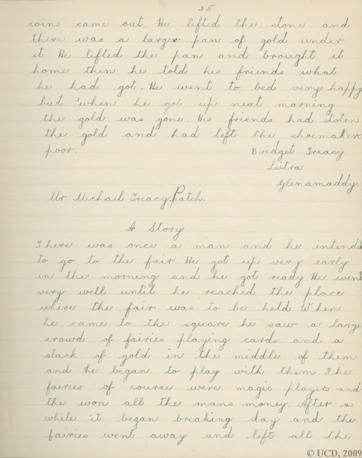 25
coins came out. He lifted the stone and
there was a larger pan of gold under
it He lifted the pan and brought it
home then he told his friends what
he had got. He went to bed very happy
but when he got up next morning
the gold was gone. His friends had stolen
the gold and had left the shoemaker
poor. Bridget Treacy
Glenamaddy.
Mr Michael Treacy Patch.
A Story
There was once a man and he intend
to go to the fair He got up very early
in the morning and he got ready He went
very well until he reached the place
where the fair was to be held. When
he came to the square he saw a large
crowd of fairies playing cards and a
stack of gold in the middle of them
and He began to play with them The
fairies of course were magic players and
the won all the mans money. After a
while it began breaking day and the
fairies went away and left all the
© UCD, 2009